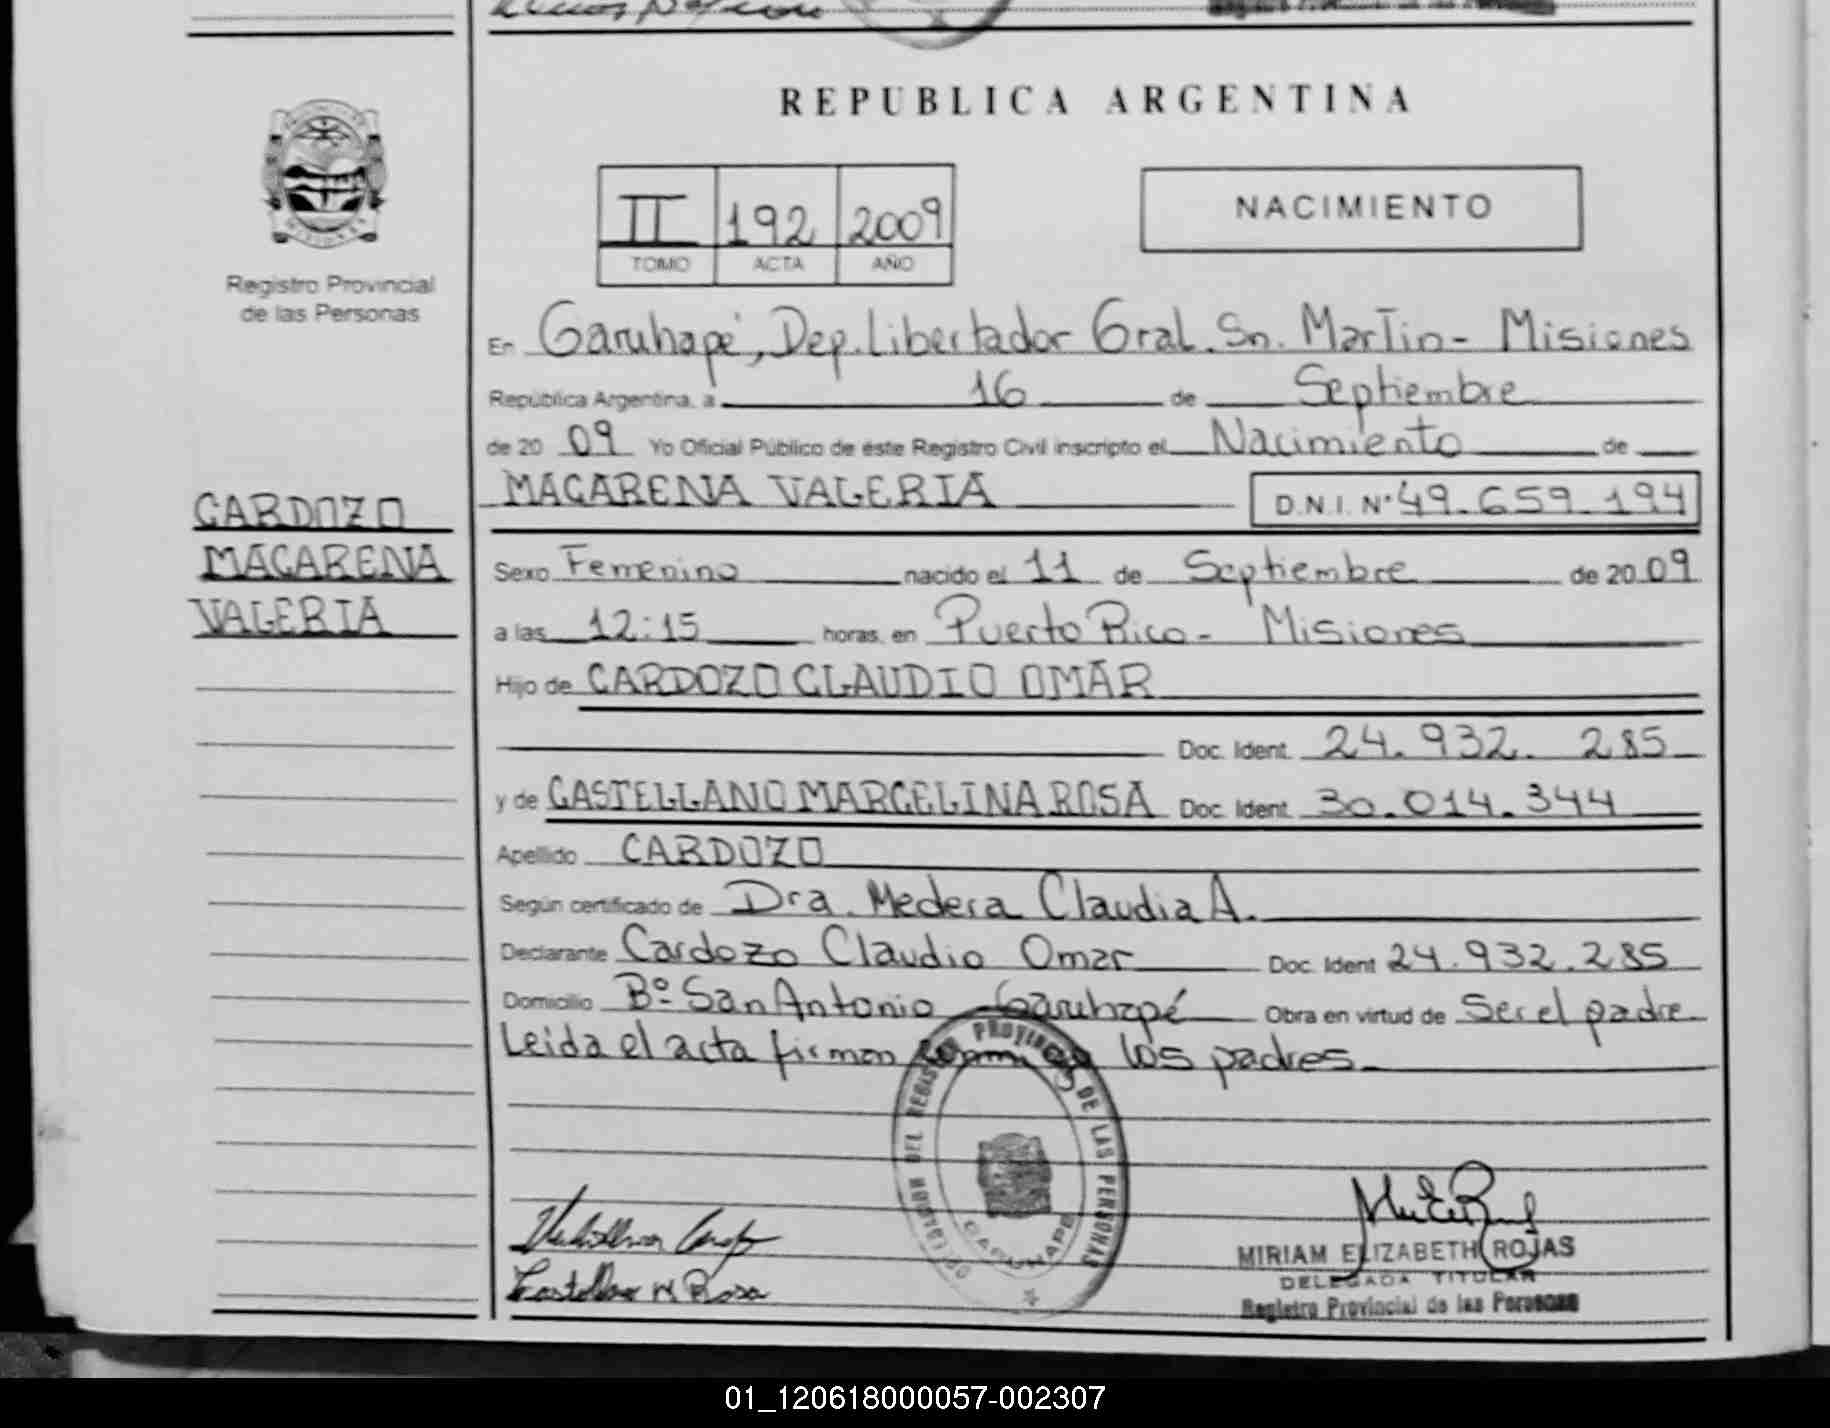 REPUBLICA ARGENTINA
II 192 2009
TOMO ACTA AÑO
NACIMIENTO
Registro Provincial
de las Personas
En Garuhapé, Dep. Libertador Gral. Sn. Martin - Misiones
República Argentina, a 16 de Septiembre
de 20 09 Yo Oficial Público de éste Registro Civil inscripto el Nacimiento de
MACARENA VALERIA D.N.I. Nº 49.659.194
CARDOZO
MACARENA
VALERIA
Sexo Femenino nacido el 11 de Septiembre de 20 09
a las 12:15 horas, en Puerto Rico - Misiones
Hijo de CARDOZO CLAUDIO OMAR
Doc. Ident. 24.932.285
y de CASTELLANO MARCELINA ROSA Doc. Ident. 30.014.344
Apellido CARDOZO
Según certificado de Dra. Medera Claudia A.
Declarante Cardozo Claudio Omar Doc. Ident 24.932.285
Domicilio Bº San Antonio Garuhapé Obra en virtud de Ser el padre
Leida el acta firman los padres.
PROVINCIAL DE LAS PERSONAS
GARUHAPE
Castellano M Rosa
MIRIAM ELIZABETH ROJAS
DELEGADA TITULAR
Registro Provincial de las Personas
01_120618000057-002307